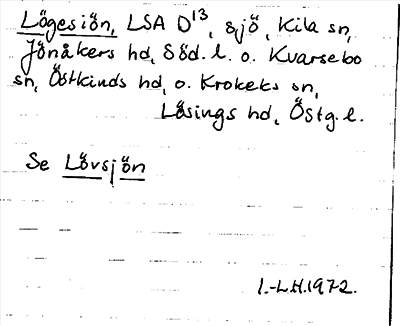 Lögesiön, LSA D13, sjö, Kila sn,
Jönåkers hd, Söd. l. o. Kvarsebo
sn, Östkinds hd, o. Krokeks sn,
Lösings hd, Östg. l.
Se Lövsjön
I.-L.H.1972.